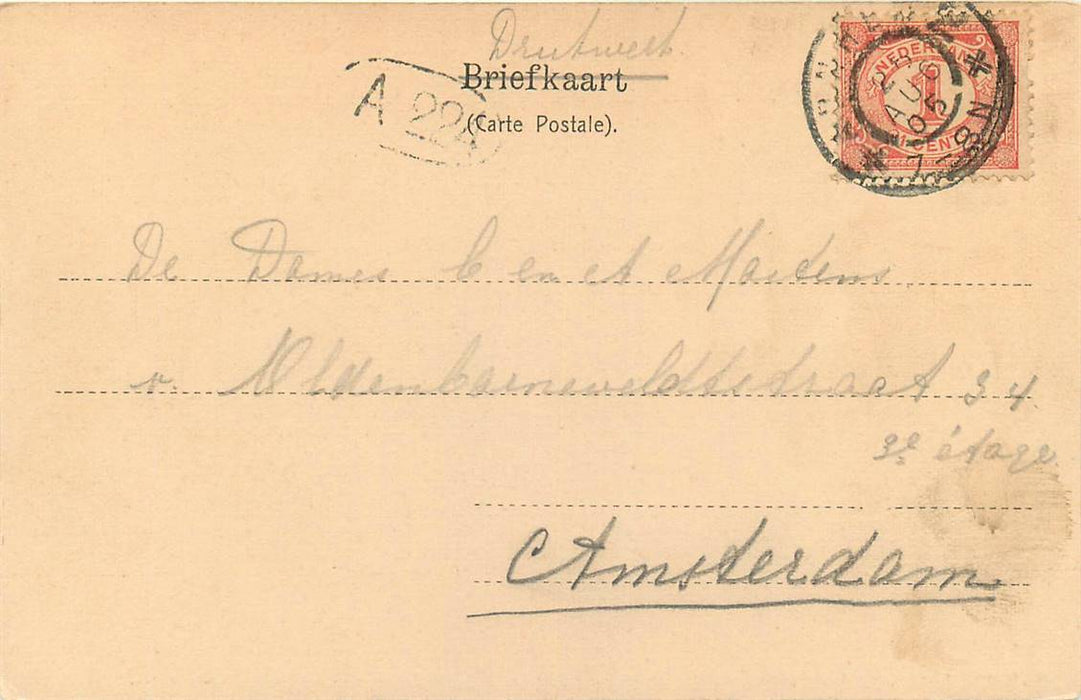 Drukwerk
Briefkaart
(Carte Postale).
A 22
NEDERLAND
1
CENT
AUG
05
7-8N
De Dames C en A Martens
v. Oldenbarneveldtstraat 34
3e étage
Amsterdam